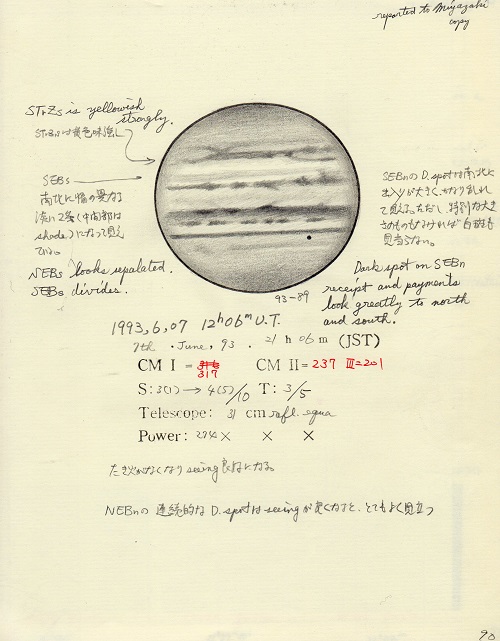 reported to Miyazaki
copy
STrZs is yellowish
strongly.
STrZnは黄色味強し
SEBs
南北に幅の異なる
淡い2条(中間部は
shade)になって見え
ている。
NEBs looks sepalated.
SEBs divides.
SEBnのD.spotは南北に
出入りが大きく、
て見える。ただし、特別な大き
見当らない。
Dark spot on SEBn
receipt and payments
look greatly to north
and south.
93-89
1993,6,07 12h06m U.T.
7th .June, 93 . 21h 06m (JST)
CM I = 317 CM II = 237 III=201
S: 3(1) → 4(5)/10 T: 3/5
Telescope: 31 cm refl. equa
Power: 274× × ×
seeing良好になる。
NEBnの連続的なD.spotはseeingが良くなると、とてもよく見立つ
90